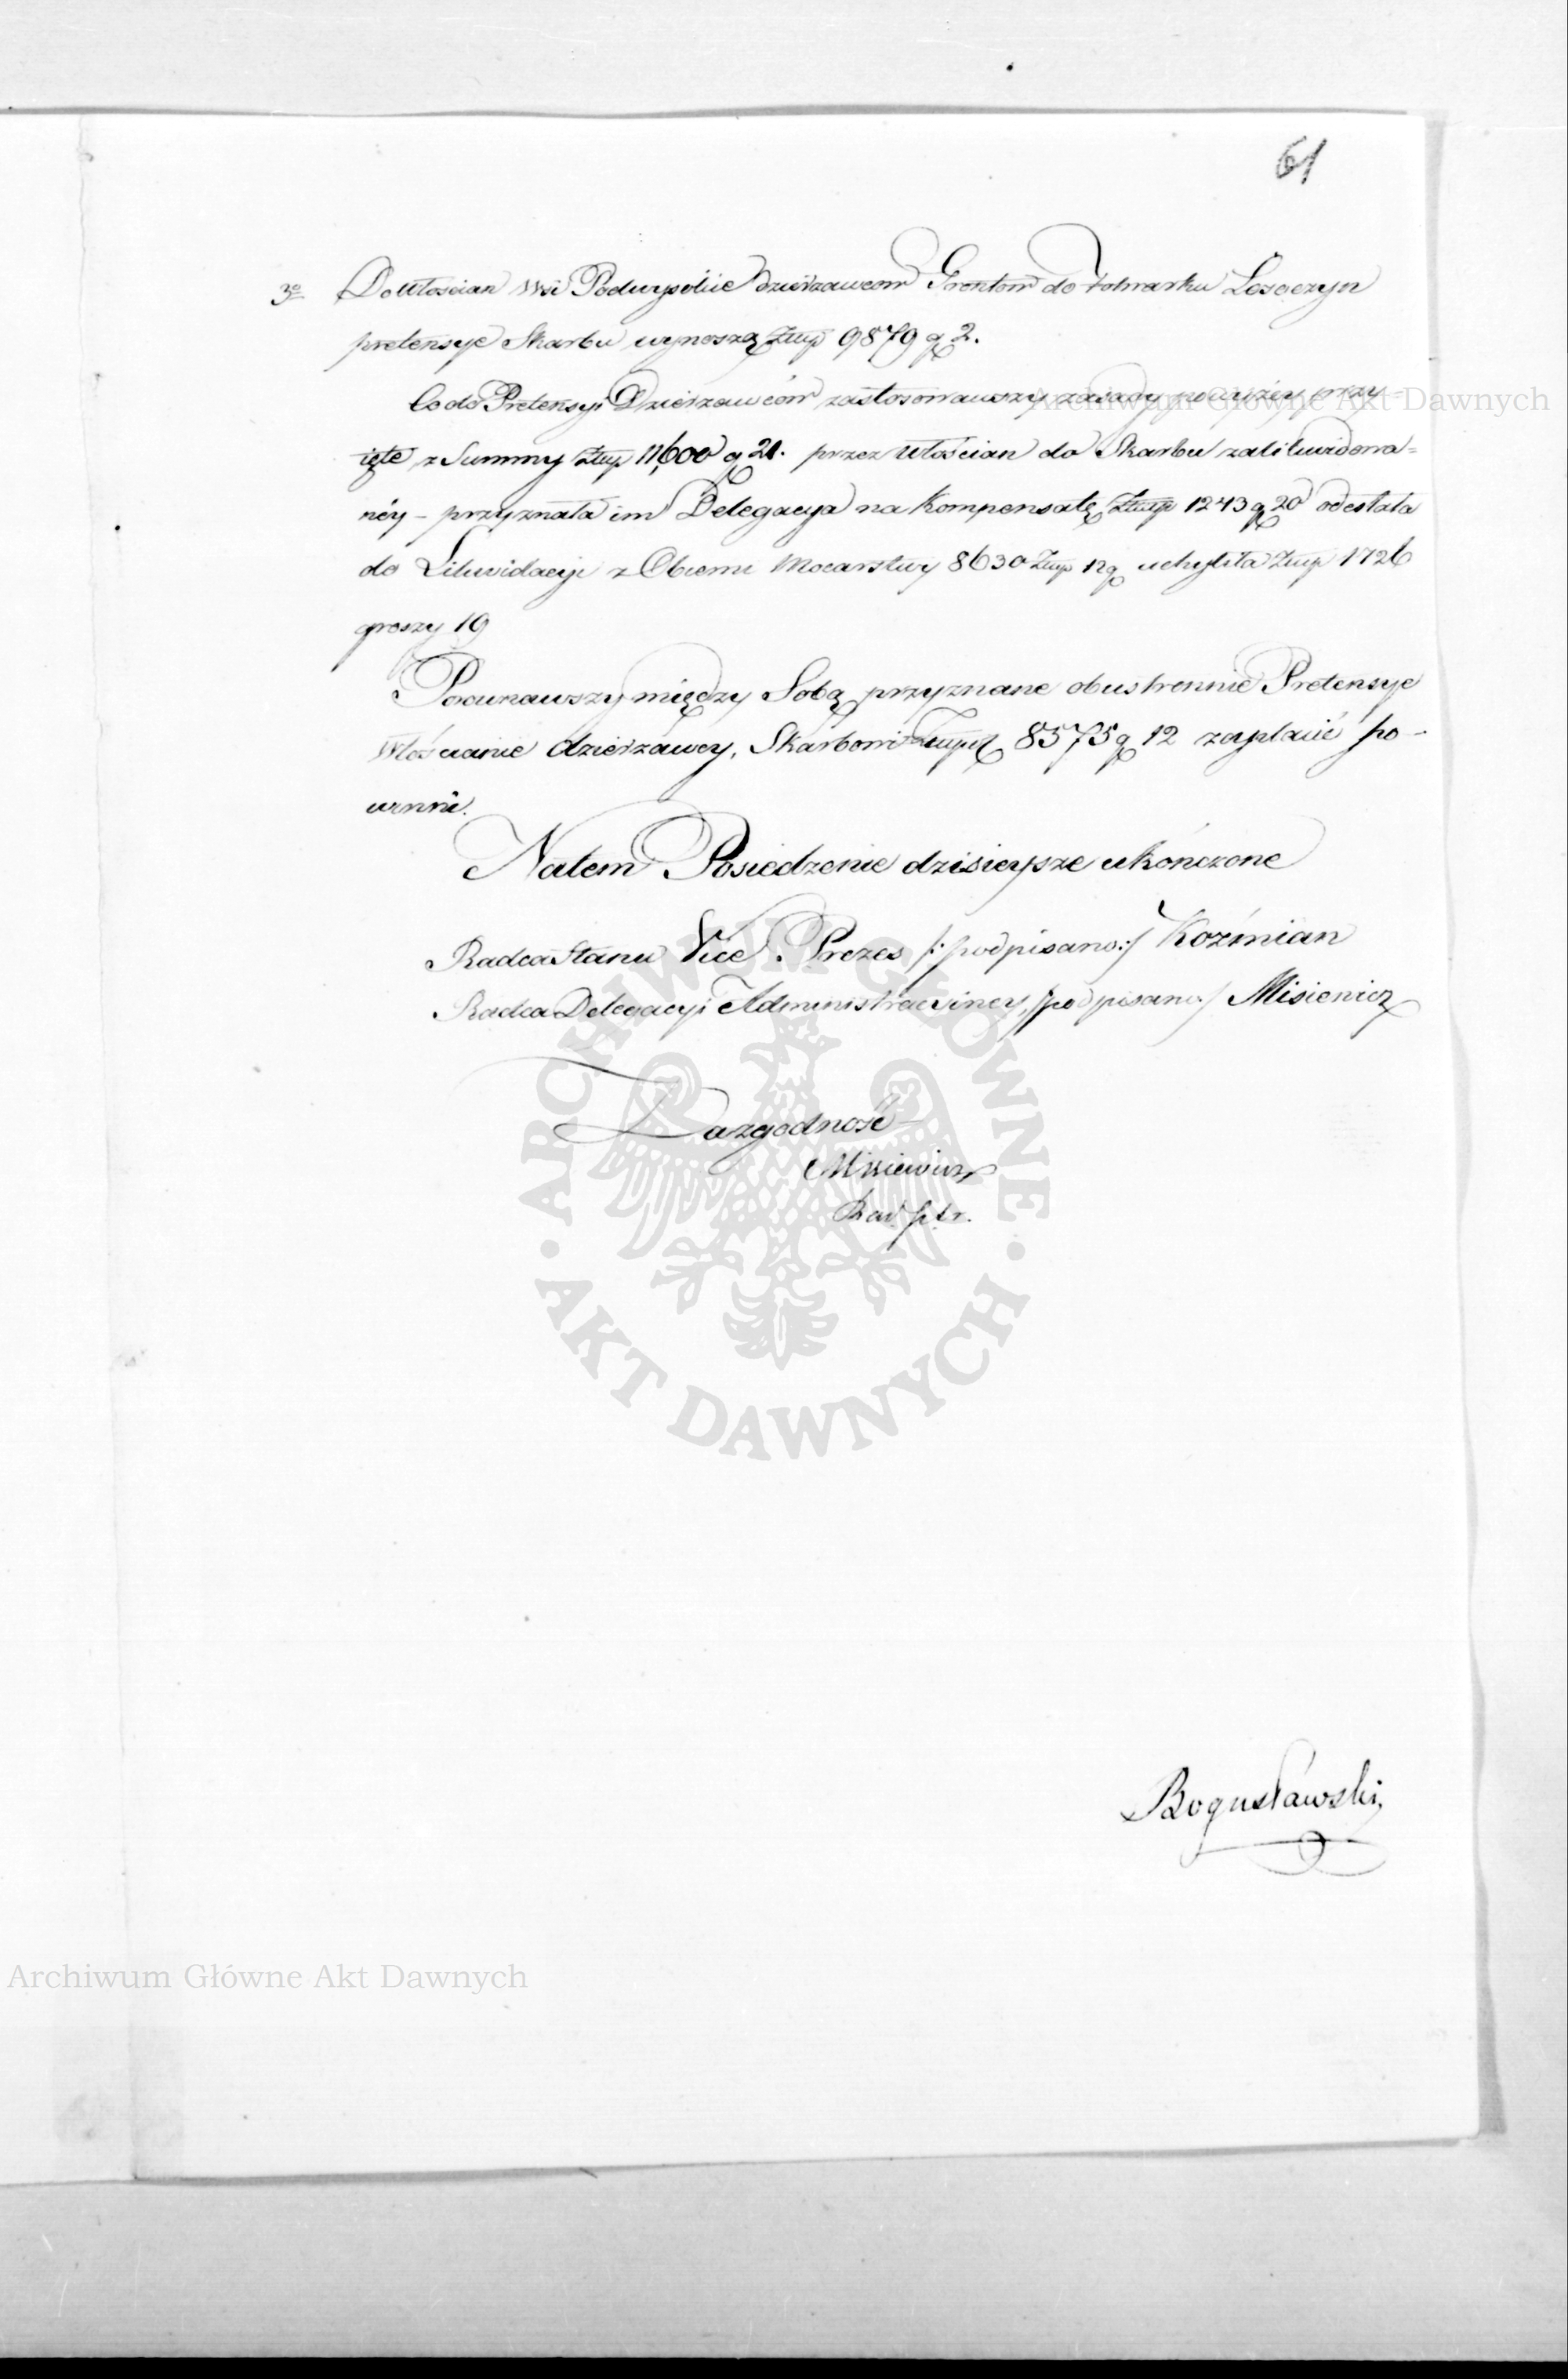 61
3o Do Włościan Wsi Podwysokie dzierzawcow Grontow do folwarku Leszczyn
pretensye Skarbu wynoszą Złup 9879 g 2.
Co do Pretensyi Dzierzawców zastosowawszy zasady powyżey przy=
ięte z Summy Złup 11,600 g 21. przez Włościan do Skarbu zalikwidowa=
néy – przyznała im Delegacya na Kompensatę Złup 1243 g 20 odesłała
do Likwidacyi z Obcemi Mocarstwy 8630 Złup 12 g uchyliła Złup 1726
groszy 19
Porównawszy między Sobą przyznane obustronnie Pretensye
Włościanie dzierzawcy, Skarbowi Złup 8575 g 12 zapłacić po-
winni.
Natem Posiedzenie dzisieysze ukończone
Radca Stanu Vice Prezes /:podpisano:/ Koźmian
Radca Delegacyi Administracyiney, /podpisano:/ Misiewicz
Za zgodność
Misiewicz
Bogusławski
Archiwum Główne Akt Dawnych
ARCHIWUM GŁÓWNE
AKT DAWNYCH
Archiwum Główne Akt Dawnych